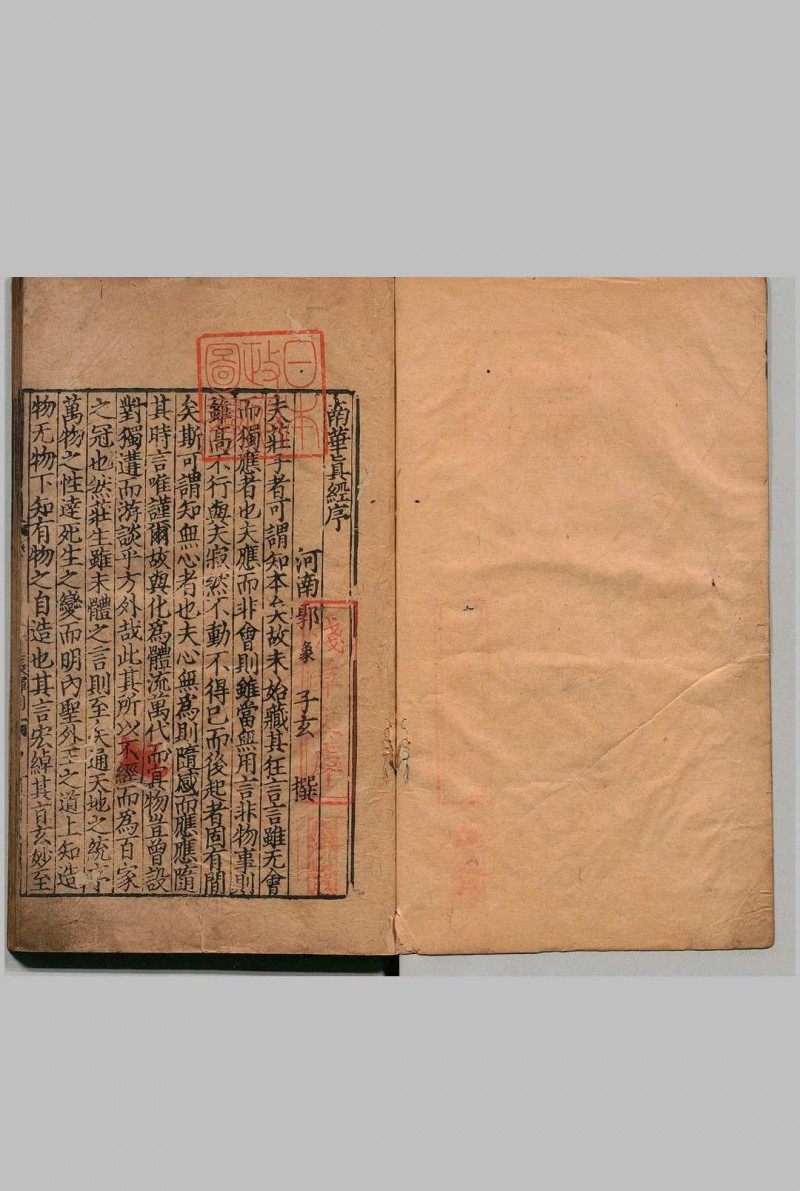 南華眞經序
河南郭象子玄撰
夫莊子者可謂知本矣故未始藏其狂言言雖无會
而獨應者也夫應而非會則雖當無用言非物事則
雖髙不行與夫寂然不動不得已而後起者固有間
矣斯可謂知無心者也夫心無爲則隨感而應應隨
其時言唯謹爾故與化爲體流萬代而冥物豈曾設
對獨遘而游談乎方外哉此其所以不經而為百家
之冠也然莊生雖未體之言則至矣通天地之統序
萬物之性達死生之變而明內聖外王之道上知造
物无物下知有物之自造也其言宏綽其旨玄妙至
日本
政
圖